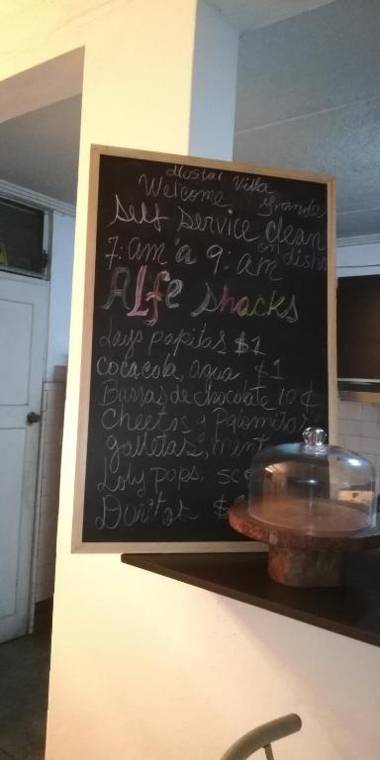 Hostal Villa
Welcome Grande
Self service clean
7:am a 9:am on dishs
ALfe shacks
Lays papitas $1
cocacola, agua $1
Barras de chocolate 10¢
Cheetos y palomitas
galletas, ment
Loly pops. 50¢
Doritos $